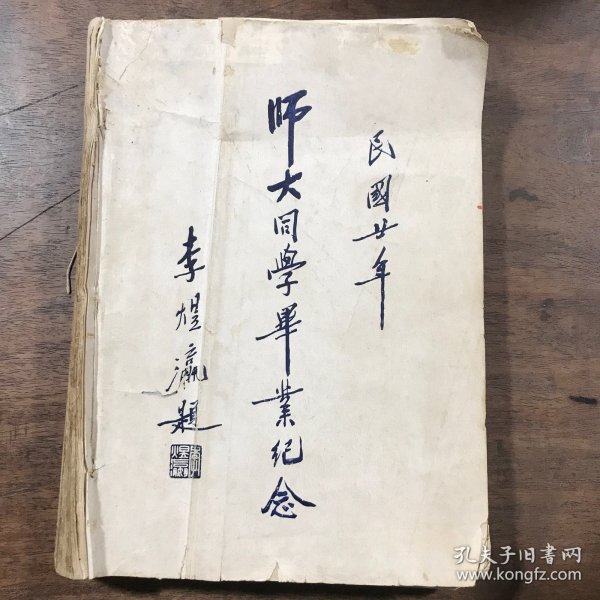 民國廿年
师大同學畢業纪念
李煜瀛題
孔夫子旧書网
www.kongfz.com